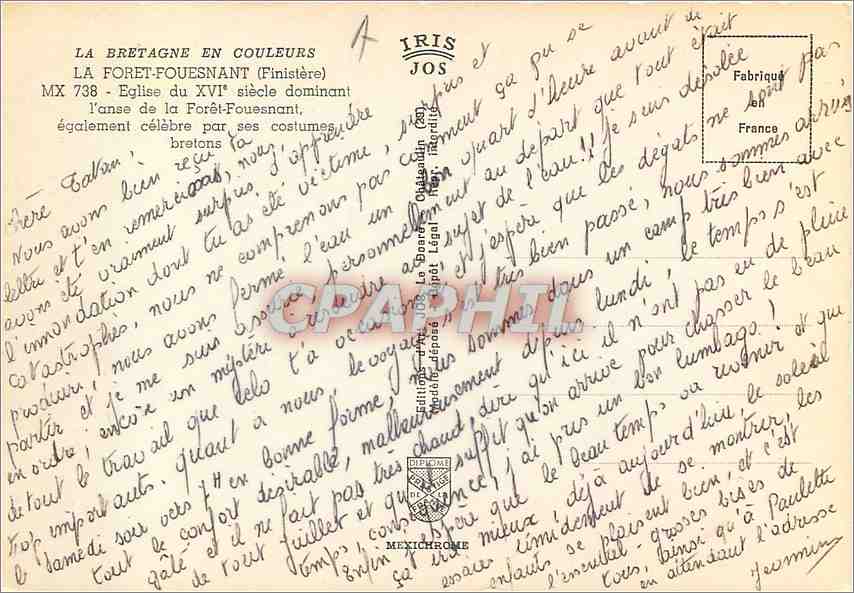 LA BRETAGNE EN COULEURS
LA FORET-FOUESNANT (Finistère)
MX 738 - Eglise du XVIe siècle dominant
l'anse de la Forêt-Fouesnant,
également célèbre par ses costumes
bretons
IRIS
JOS
Editions d'Art JOS Le Doaré - Châteaulin (29)
Modèle déposé - Dépôt Légal - Repr. interdite
Fabriqué
en
France
DIPLOME
PRESTIGE
DE LA
FRANCE
MEXICHROME
CPAPHIL
Nous avons bien reçu ta
lettre et t'en remercions, nous
avons été vraiment surpris d'apprendre
l'innondation dont tu as été victime, surpris et
catastrophés, nous ne comprenons pas comment ça pu se
produire, nous avons fermé l'eau un bon quart d'heure avant de
partir et je me suis assurée personnellement au départ que tout était
en ordre; encore un mystère à résoudre au sujet de l'eau!! Je suis désolée
de tout le travail que cela t'a occasionné et j'espère que les dégats ne sont pas
trop importants. Quant à nous, le voyage s'est très bien passé, nous sommes arrivés
le samedi soir vers 7H en bonne forme, nous sommes dans un camp très bien avec
tout le confort désirable, malheureusement depuis lundi, le temps s'est
gâté et il ne fait pas très chaud, dire qu'ici il n'ont pas eu de pluie
de tout juillet et qu'il suffit qu'on arrive pour chasser le beau
temps, conséquence, j'ai pris un bon lumbago!
Enfin j'espère que le beau temps va revenir et que
ça ira mieux, déjà aujourd'hui, le soleil
essaie timidement de se montrer, les
enfants se plaisent bien, et c'est
l'essentiel - grosses bises de
tous, ainsi qu'à Paulette
en attendant l'adresse